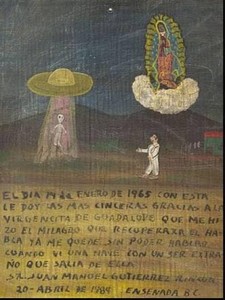 EL DIA 14 de ENERO DE 1965 CON ESTA
LE DOY LAS MAS CINCERAS GRACIAS A LA
VIRGENCITA DE GUADALUPE QUE ME HI
ZO EL MILAGRO QUE RECUPERARA EL HA
BLA YA ME QUEDE SIN PODER HABLAR
CUANDO VI UNA NAVE CON UN SER EXTRA
ÑO QUE SALIA DE ELLA
SR. JUAN MANOEL GUTIERREZ RINCON
20-ABRIL DE 1989 ENSENADA B.C.